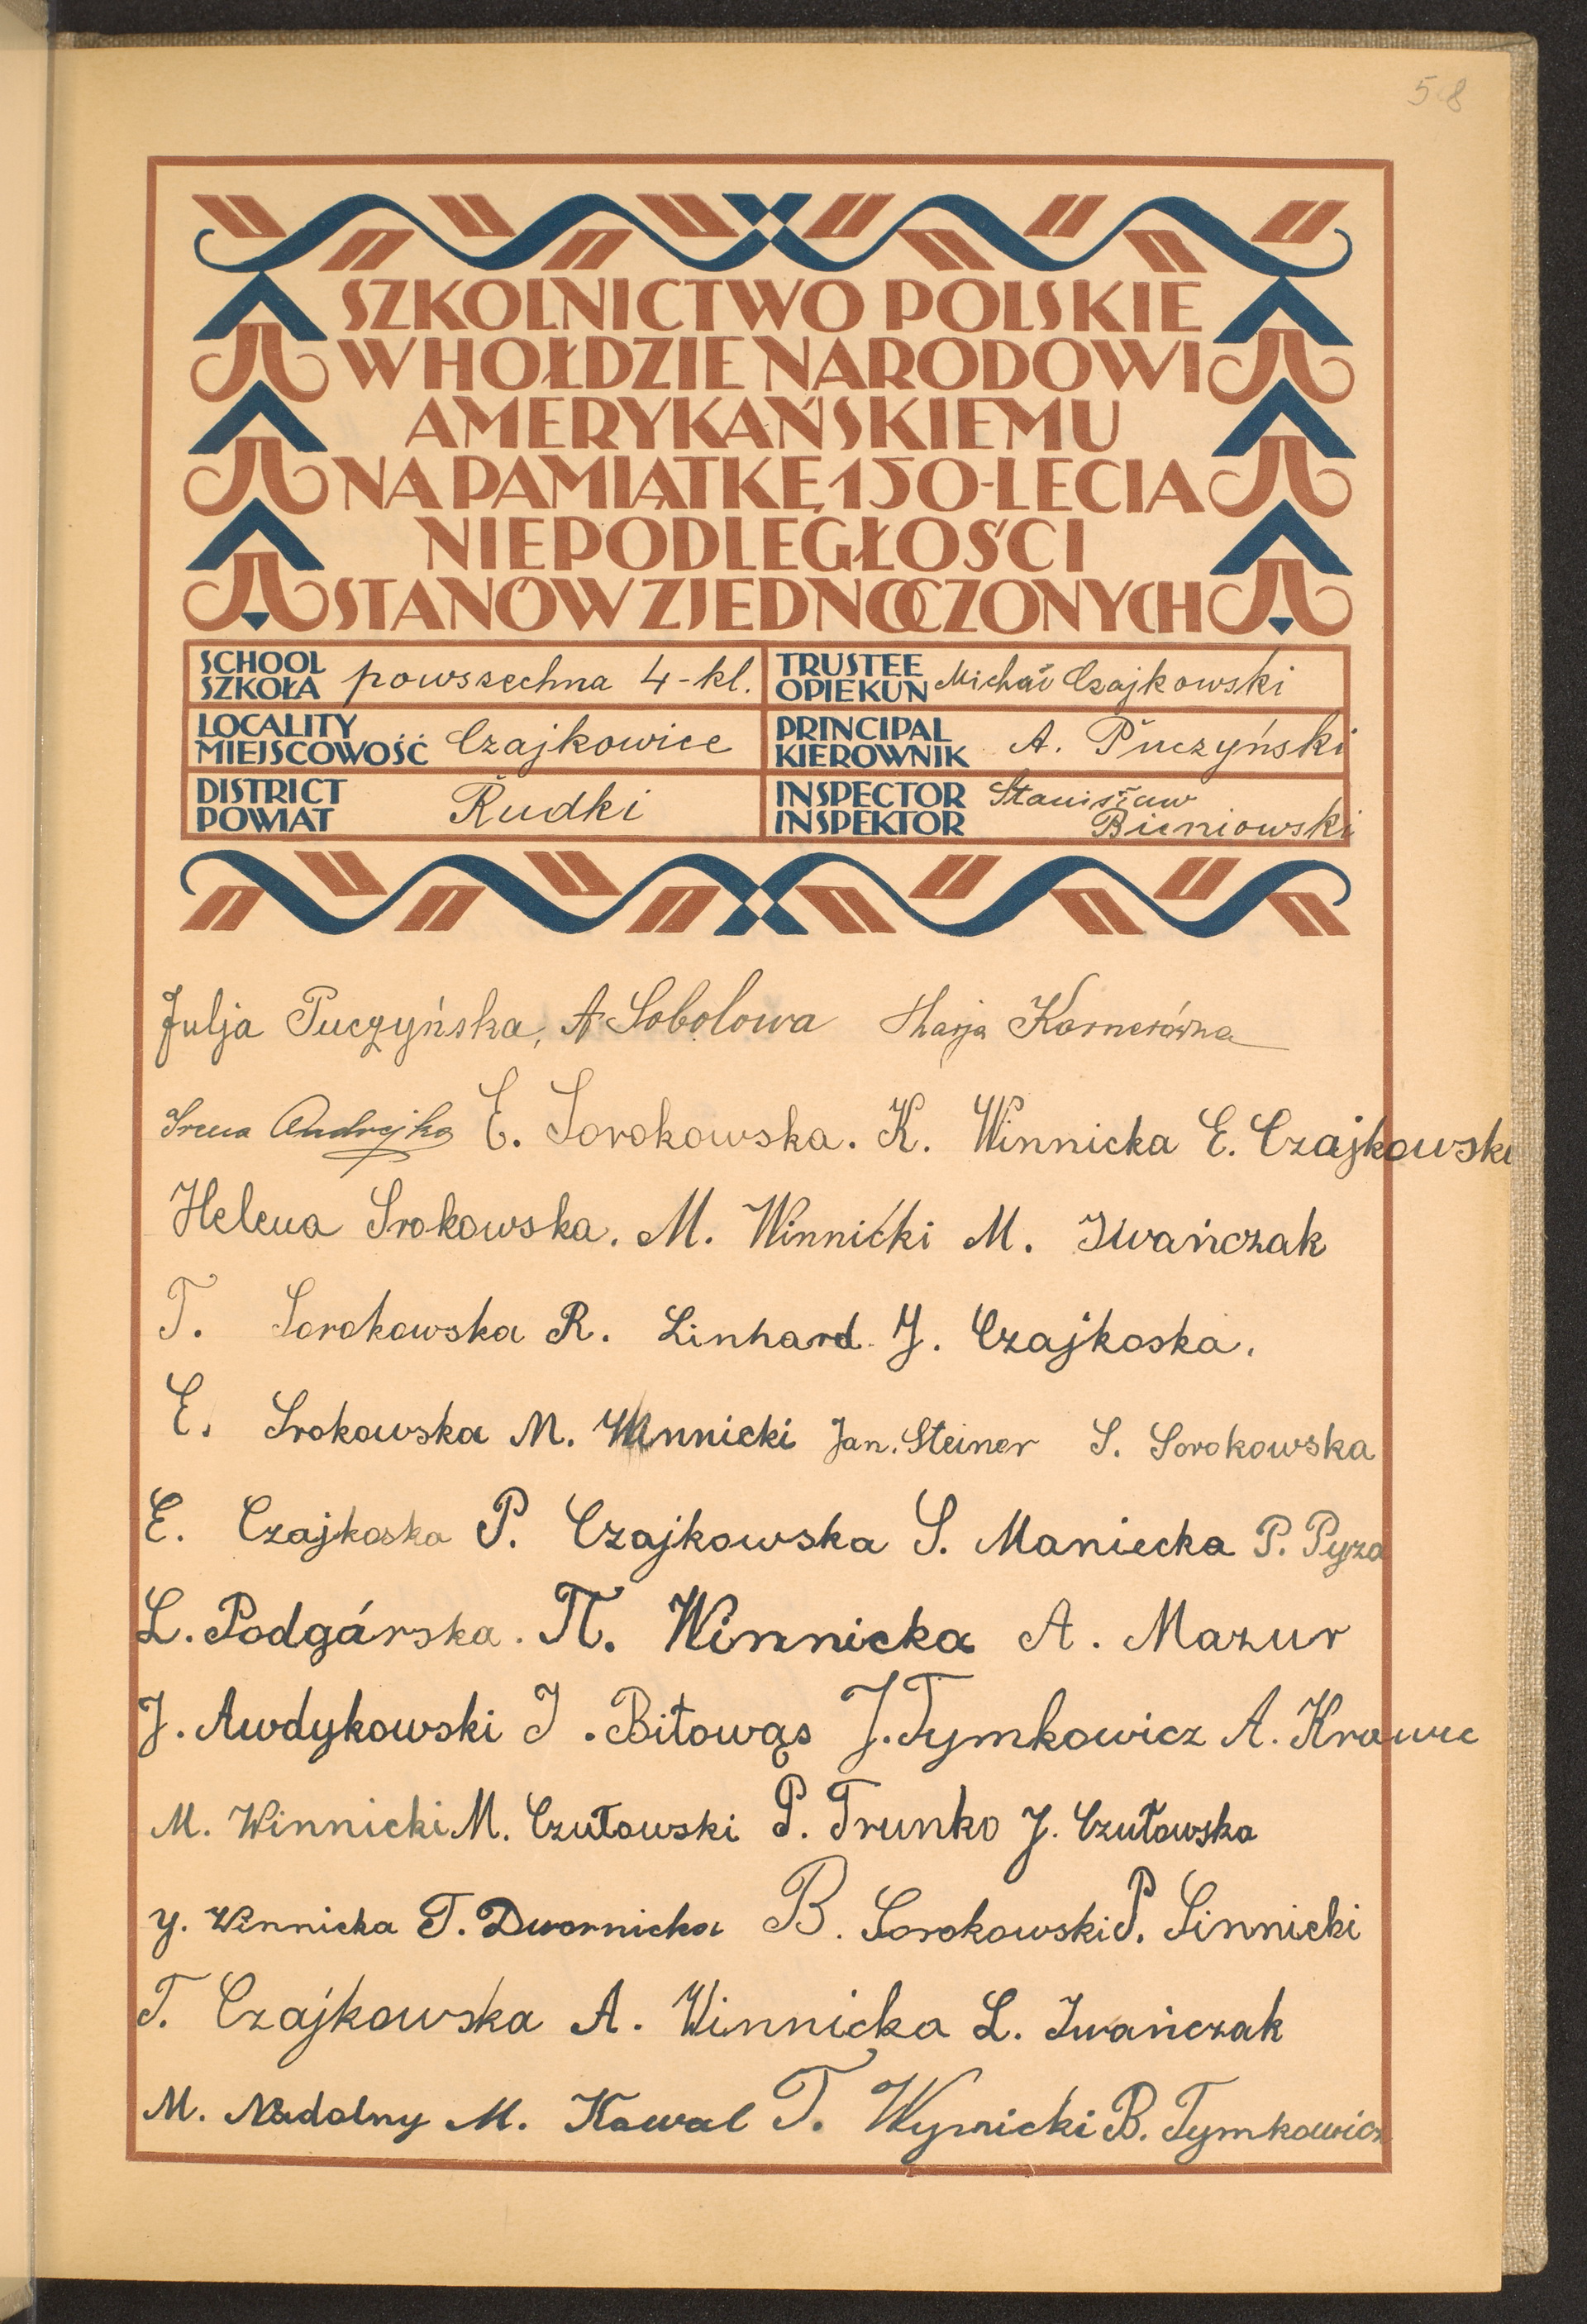 58
SZKOLNICTWO POLSKIE
W HOŁDZIE NARODOWI
AMERYKAŃSKIEMU
NA PAMIĄTKĘ 150-LECIA
NIEPODLEGŁOŚCI
STANÓW ZJEDNOCZONYCH
SCHOOL SZKOŁA powszechna 4-kl. TRUSTEE OPIEKUN Michał Czajkowski
LOCALITY MIEJSCOWOŚĆ Czajkowice PRINCIPAL KIEROWNIK A. Puczyński
DISTRICT POWIAT Rudki INSPECTOR INSPEKTOR Stanisław Bieniowski
Julja Puczyńska, A. Sobolowa Marja Kornerówna
Irena Andrejko E. Sorokowska. K. Winnicka E. Czajkowski
Helena Srokowska. M. Winnićki M. Iwańczak
T. Sorokowska R. Linhard J. Czajkoska.
E. Srokowska M. Winnicki Jan. Steiner S. Sorokowska
E. Czajkoska P. Czajkowska S. Maniecka P. Pyza
L. Podgárska. П. Winnicka A. Mazur
J. Awdykowski I. Bitowąs J. Tymkowicz A. Krawec
M. Winnicki M. Czułowski P. Trunko J. Czułowska
Y. Winnicka T. Dwornicka B. Sorokowski P. Sinnicki
T. Czajkowska A. Winnicka L. Iwańczak
M. Nadolny M. Kowal T. Wynnicki B. Tymkowicz